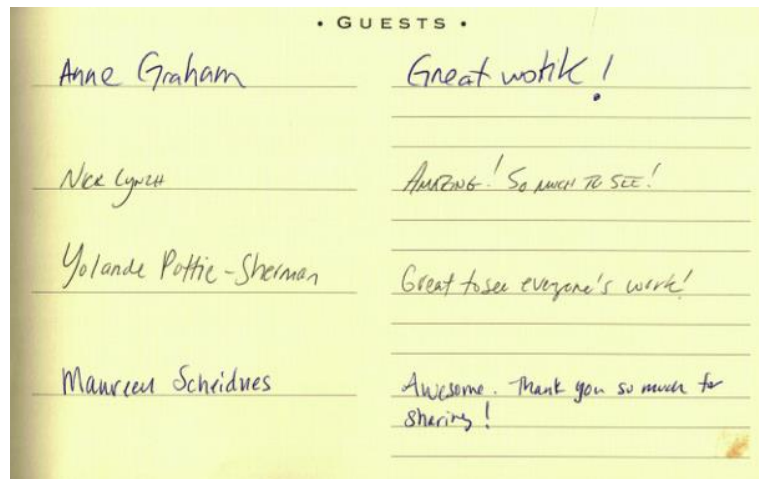 • GUESTS •
Anne Graham Great work!
Nick Lynch AMAZING! SO MUCH TO SEE!
Yolande Pottie-Sherman Great to see everyone's work!
Maureen Awesome. Thank you so much for
sharing!